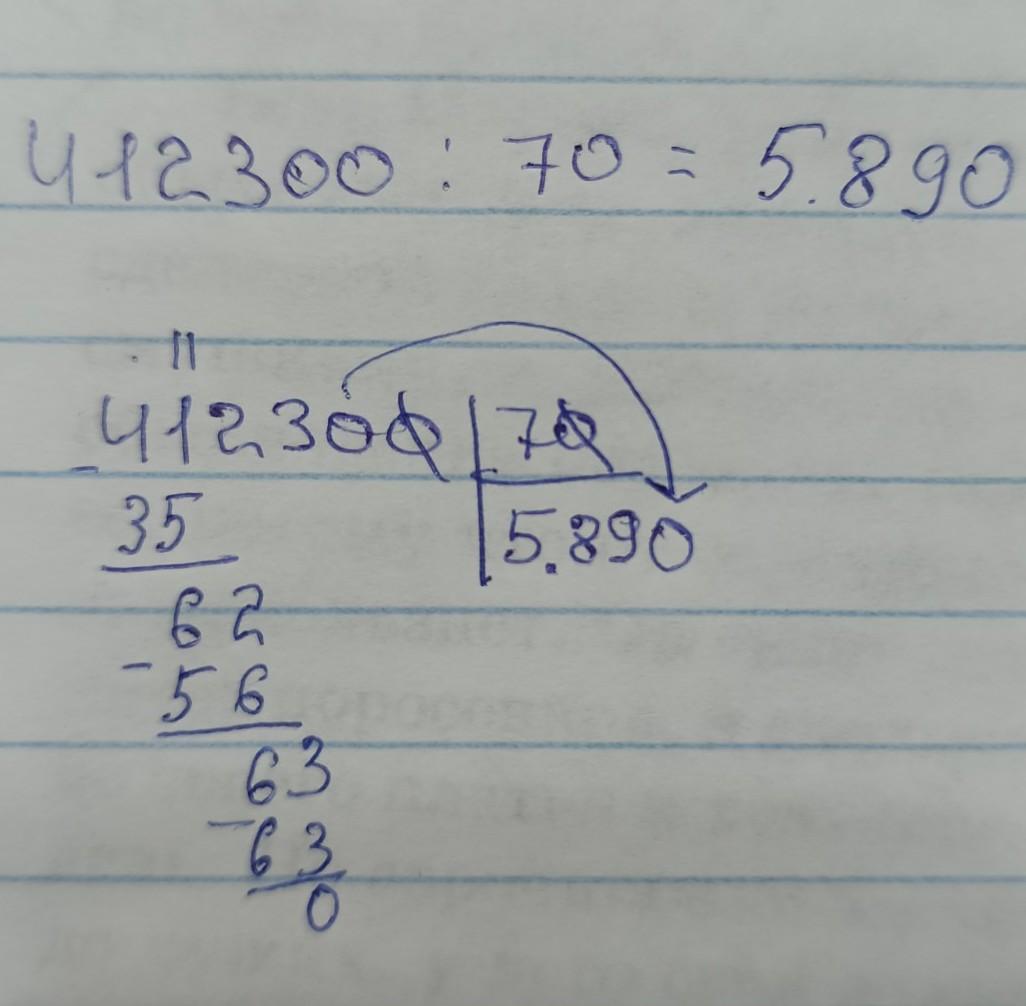 412300 : 70 = 5.890
412300 | 70
- 35 | 5.890
62
- 56
63
- 63
0